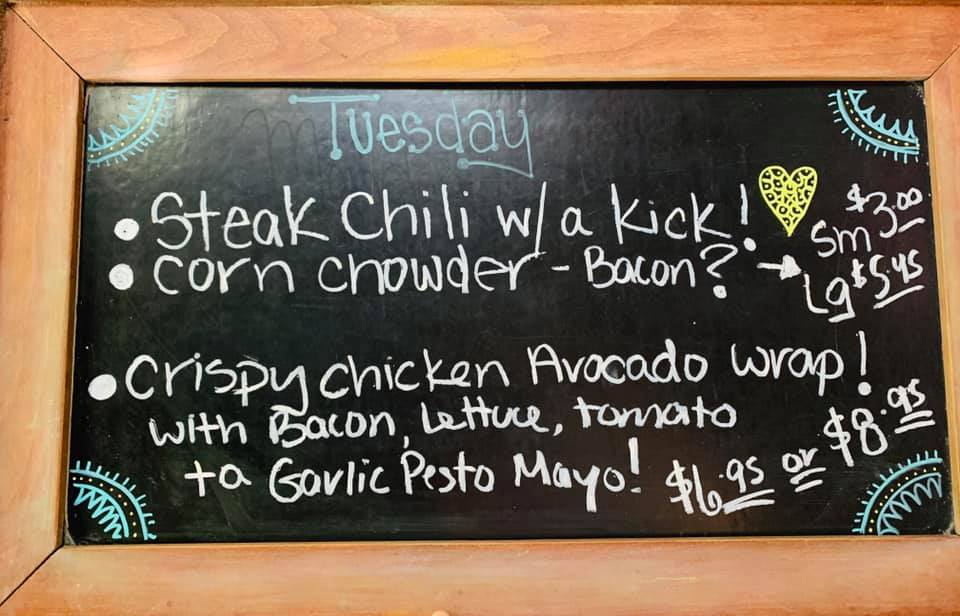 Tuesday
• Steak Chili w/ a kick!
$3.00
Sm
• corn chowder - Bacon? →
Lg $5.45
• Crispy chicken Avocado wrap!
with Bacon, Lettuce, tomato
+ a Garlic Pesto Mayo! $6.95 or $8.95